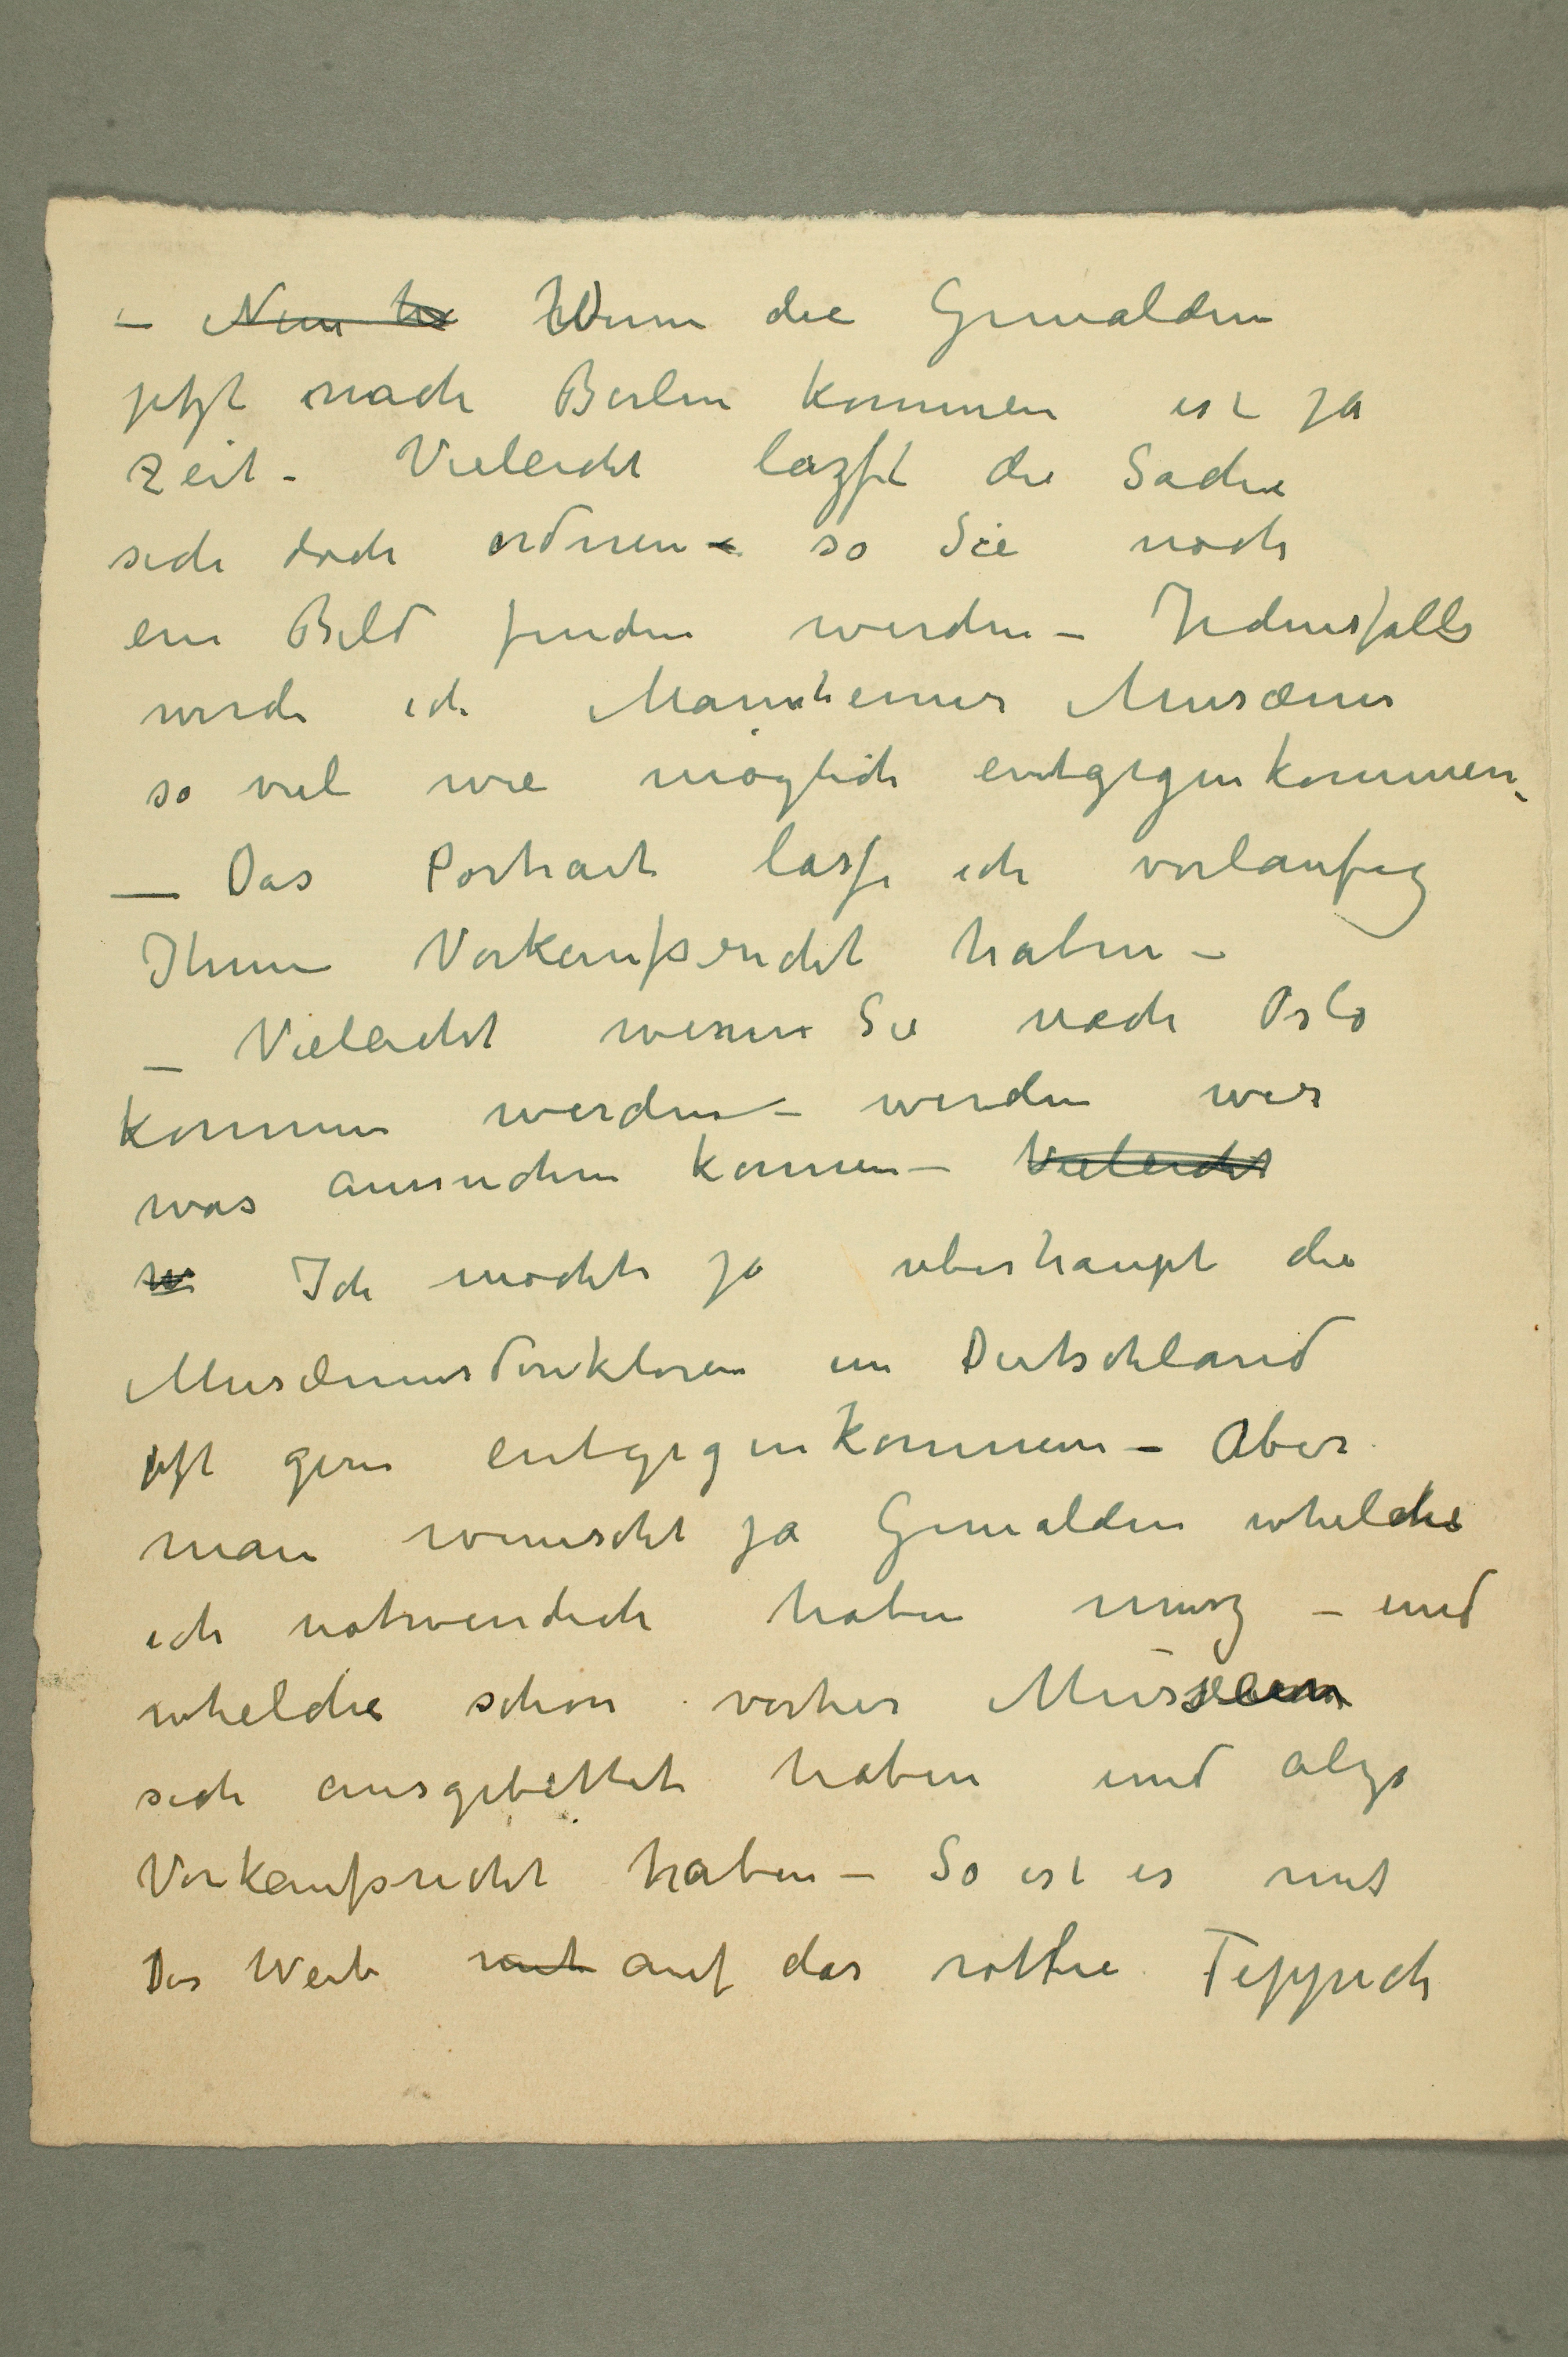 – Nun Wenn die Gemalden
jetzt nach Berlin kommen ist ja
Zeit – Vieleicht lazst die Sache
sich doch ordnen – so Sie noch
ein Bild finden werden – Jedensfalls
werde ich Mannheimer Musæum
so viel wie möglich entgegenkommen,
– Das Portrait lasse ich vorlaufig
Ihnen Vorkaufsrecht haben –
– Vieleicht wenn Sie nach Oslo
kommen werden – werden wir
was ausrichen konnen – Vieleicht
w Ich möchte ja uberhaupt die
Musæumsdirektoren in Deutschland
oft gern entgegenkommen – Aber
man wunscht ja Gemalden whelche
ich notwendich haben musz – und
whelche schon vorher Musæen
sich ausgebettet haben und alzo
Vorkaufsrecht haben – So ist es mit
Das Weib mit auf das rothe Teppich